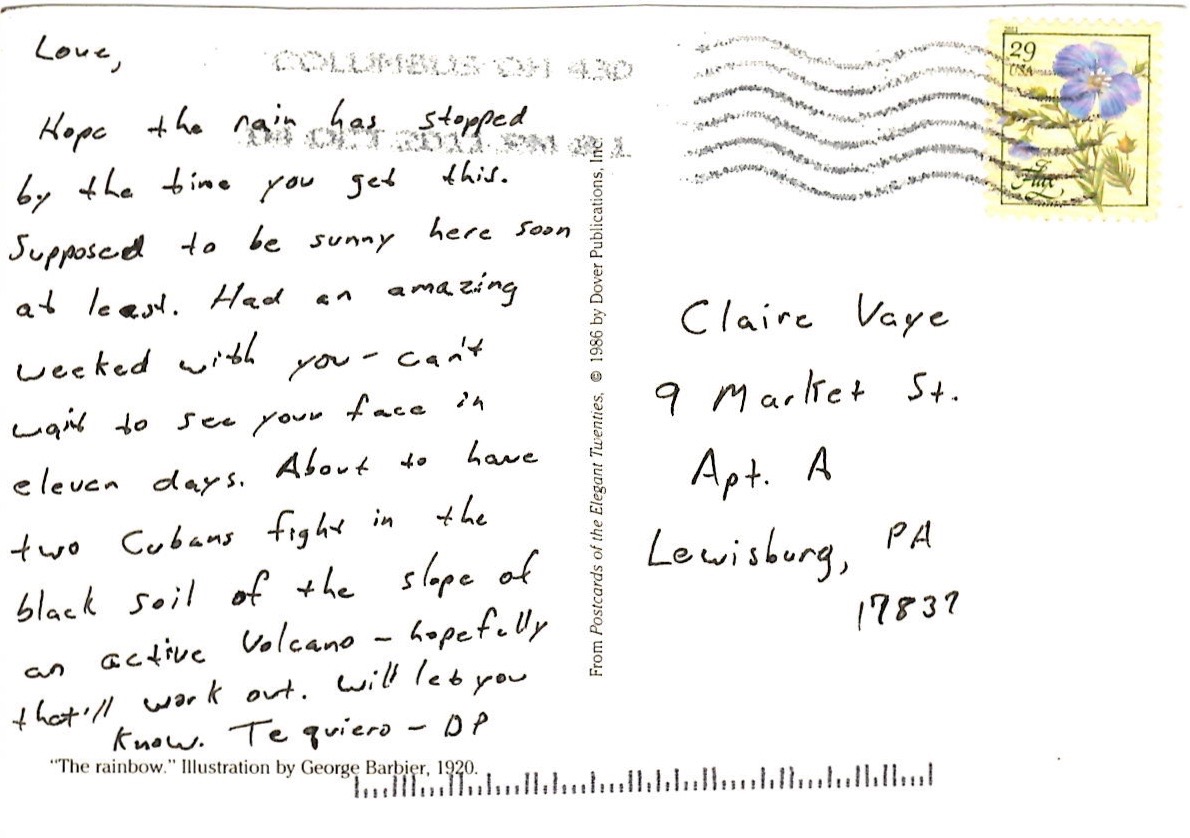 Love,
COLUMBUS OH 430
OCT 2011 PM
Hope the rain has stopped
by the time you get this.
Supposed to be sunny here soon
at least. Had an amazing
weeked with you – can't
wait to see your face in
eleven days. About to have
two Cubans fight in the
black soil of the slope of
an active Volcano – hopefully
that'll work out. Will let you
know. Te quiero – DP
"The rainbow." Illustration by George Barbier, 1920.
From Postcards of the Elegant Twenties, © 1986 by Dover Publications, Inc.
2011
29
USA
Flax
Claire Vaye
9 Market St.
Apt. A
Lewisburg, PA
17837